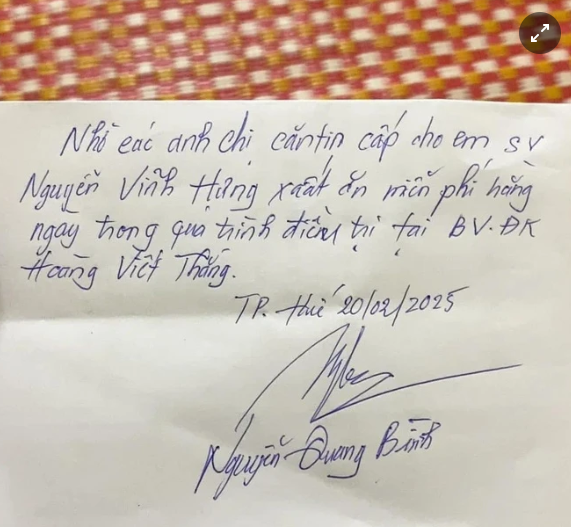 Nhờ các anh chị căntin cấp cho em SV
Nguyễn Vĩnh Hưng xuất ăn miễn phí hằng
ngày trong quá trình điều trị tại BV.ĐK
Hoàng Viết Thắng.
TP. Huế 20/02/2025
Nguyễn Quang Bình